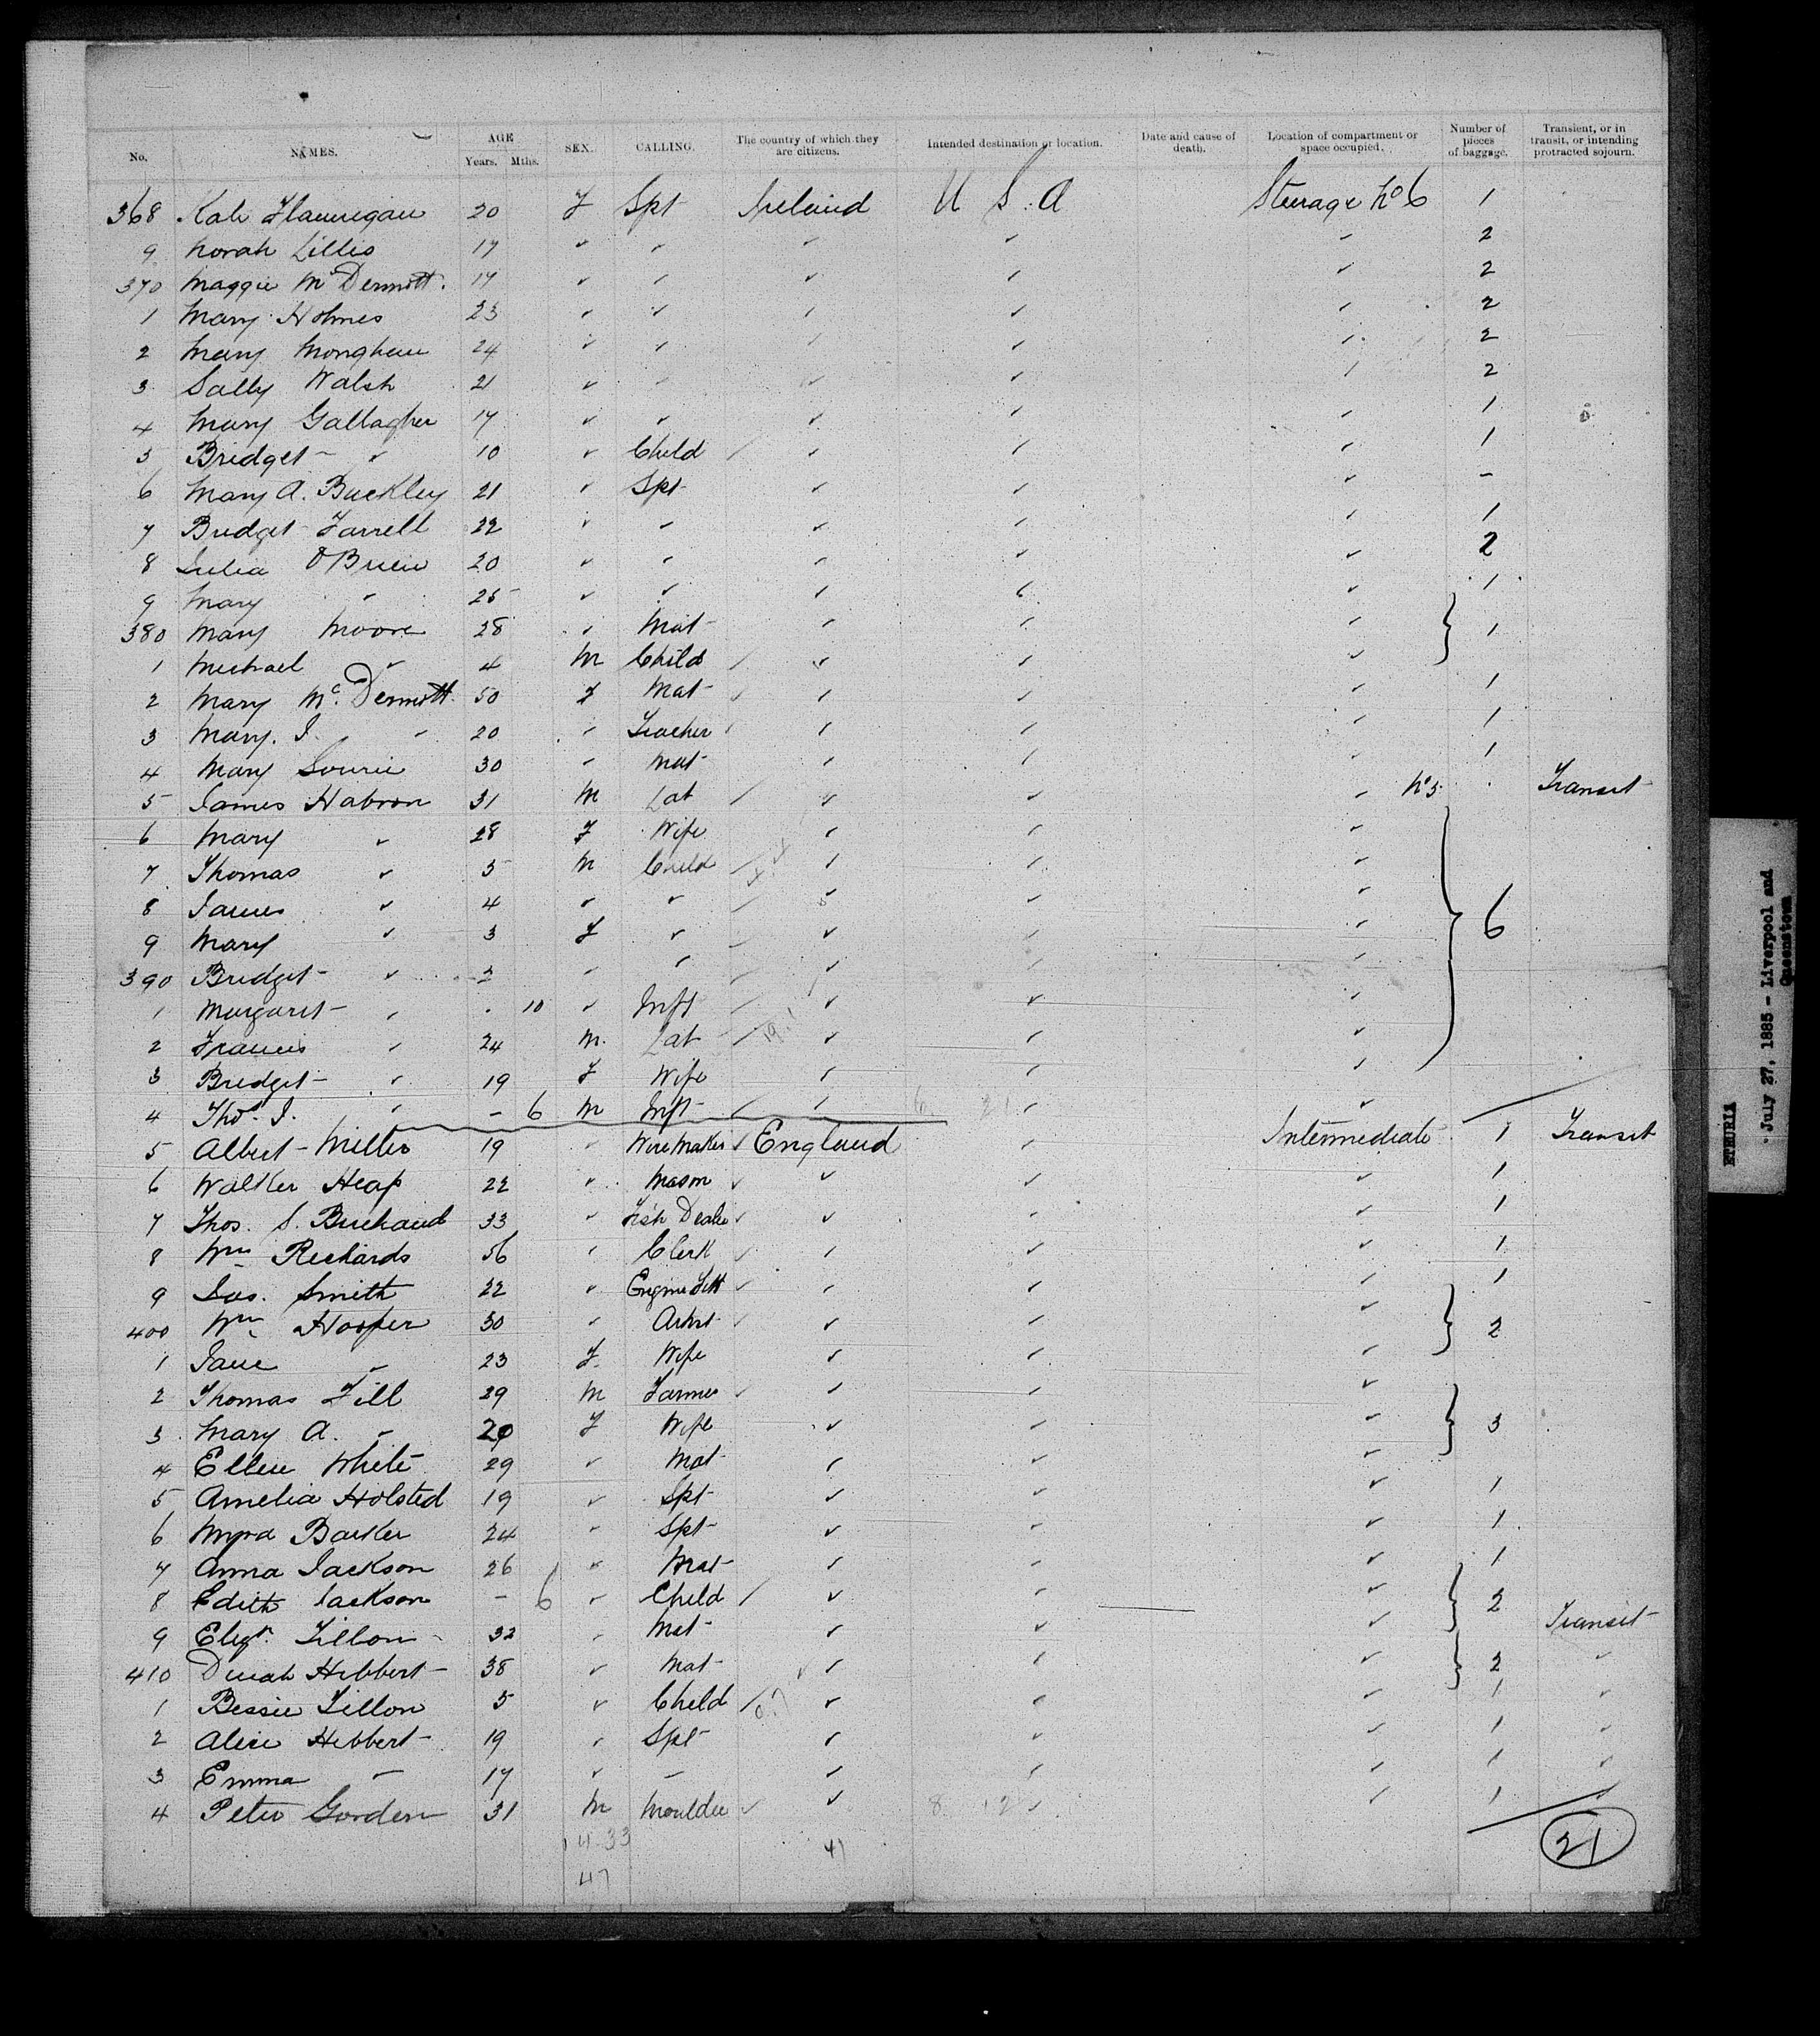 No. NAMES. AGE Years. Mths. SEX. CALLING. The country of which they are citizens. Intended destination or location. Date and cause of death. Location of compartment or space occupied. Number of pieces of baggage. Transient, or in transit, or intending protracted sojourn.
368 Kate Flannigan 20 F Spt Ireland U S. A Steerage No 6 1
9 Norah Lillis 17 " " " " " 2
370 Maggie McDermott. 17 " " " " " 2
1 Mary Holmes 23 " " " " " 2
2 Mary Monghan 24 " " " " " 2
3 Sally Walsh 21 " " " " " 2
4 Mary Gallagher 17 " " " " " 1
5 Bridget " 10 " Child " " " 1
6 Mary A. Buckley 21 " Spt " " " -
7 Bridget Farrell 22 " " " " " 1
8 Julia O'Brien 20 " " " " " 2
9 Mary " 25 " " " " " 1
380 Mary Moore 28 " Mat " " " 1
1 Michael " 4 M Child " " "
2 Mary McDermott. 50 F Mat " " " 1
3 Mary. J. " 20 " Teacher " " " 1
4 Mary 30 " Mat " " " 1
5 James Habron 31 M Lab " " " No 5 Transit
6 Mary " 28 F Wife " " "
7 Thomas " 5 M Child " " "
8 James " 4 " " " " " 6
9 Mary " 3 F " " " "
390 Bridget " 2 " " " " "
1 Margaret " 10 " Inft " " "
2 Francis " 24 M. Lab " " "
3 Bridget " 19 F Wife " " "
4 Thos. J. " - 6 M Inft " " "
5 Albert Miller 19 " Wire Maker England " Intermediate 1 Transit
6 Walter Heap 22 " Mason " " " 1
7 Thos. S. 33 " Fish Dealer " " " 1
8 Wm Richards 56 " Clerk " " " 1
9 Jas. Smith 22 " Engine Fitt " " " 1
400 Wm Hooper 30 " Artist " " " 2
1 Jane " 23 F. Wife " " "
2 Thomas Fill 29 M Farmer " " " 3
3 Mary A. " 29 F Wife " " "
4 Ellen White 29 " Mat " " "
5 Amelia Holsted 19 " Spt " " " 1
6 Myra Barker 24 " Spt " " " 1
7 Anna Jackson 26 " Mat " " " 1
8 Edith Jackson - 6 " Child " " " 2
9 Elizth. 32 " Mat " " " Transit
410 Dinah Hibbert 38 " Mat " " " 2 "
1 Bessie 5 " Child " " " 1 "
2 Alice Hibbert 19 " Spt " " " 1 "
3 Emma " 17 " " " " " 1 "
4 Peter Gordon 31 M Moulder " " " 1 "
14 33 41 21
47
ETRURIA
July 27, 1885 - Liverpool and
Queenstown